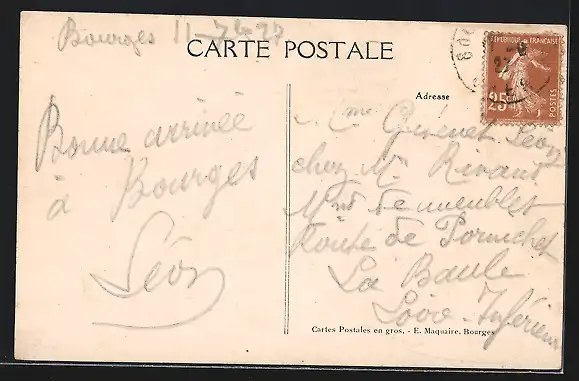 Bourges 11-7-27
CARTE POSTALE
REPUBLIQUE FRANÇAISE
25c
POSTES
Adresse
Bonne arrivée
à Bourges
Léon
Mme Léon
chez M. Rivaud
Md de meubles
Route de Pornichet
La Baule
Loire-Inférieure
Cartes Postales en gros. - E. Maquaire. Bourges